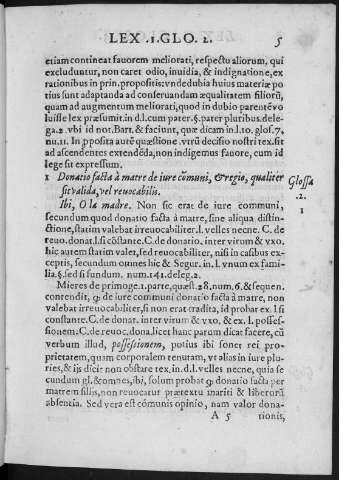 LEX .1. GLO. 2. 5
etiam contineat fauorem meliorati, respectu aliorum, qui
excluduntur, non caret odio, inuidia, & indignatione, ex
rationibus in prin. propositis: vnde dubia huius materiæ po
tius sunt adaptanda ad conseruandam æqualitatem filiorũ,
quam ad augmentum meliorati, quod in dubio parentẽ vo
luisse lex præsumit. in d.l. cum pater. §. pater pluribus. dele-
ga. 2. vbi id not. Bart. & faciunt, quæ dicam in. l. 10. glos. 7.
nu. 11. In pposita autẽ quæstione .virũ decisio nostri tex. sit
ad ascendentes extendẽda, non indigemus fauore, cum id
lege sit expressum.
1 Donatio facta à matre de iure cõmuni, & regio, qualiter
sit valida, vel reuocabilis.
Glossa
.2.
Ibi, O la madre. Non sic erat de iure communi,
1
secundum quod donatio facta à matre, sine aliqua distin-
ctione, statim valebat irreuocabiliter. l. velles necne. C. de
reuo. donat. l. si cõstante. C. de donatio. inter virum & vxo.
hic autem statim valet, sed reuocabiliter, nisi in casibus ex-
ceptis, secundum omnes hic & Segur. in. l. vnum ex fami-
lia. §. sed si fundum. num. 141. deleg. 2.
Mieres de primoge. 1. parte, quæst. 28, num. 6. & sequen.
contendit, q; de iure communi donatio facta à matre, non
valebat irreuocabiliter, si non erat tradita, id probar ex. l. si
constante. C. de donat. inter virum & vxo, & ex l. possef-
sionem. C. de reuoc. dona. licet hanc parum dicat facere, cũ
verbum illud, possessionem, potius ibi sonet rei pro-
prietatem, quam corporalem tenutam, vt alias in iure plu-
ries, & ijs dicit non obstare tex. in. d. l. velles necne, quia se
cundum gl. & omnes, ibi, solum probat q; donatio facta per
matrem filiis, non reuocatur prætextu mariti & liberorũ
absentia. Sed vera est cõmunis opinio, nam valor dona-
A 5 tionis,